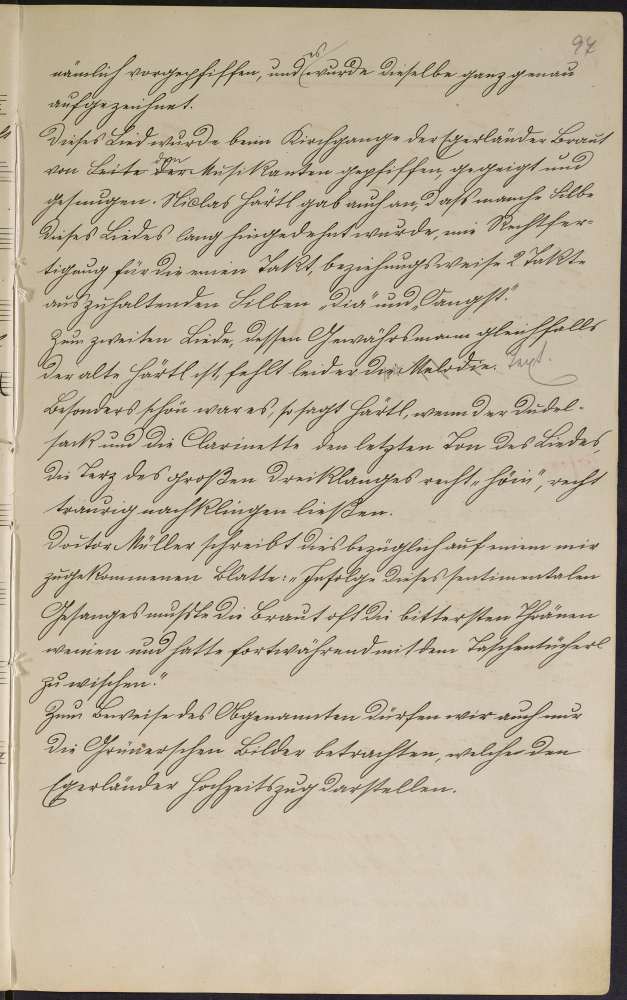 97
nämlich vorgepfiffen, und es wurde dieselbe ganz genau
aufgezeichnet.
Dieses Lied wurde beim Kirchgange der Egerländer Braut
von Seite den Musikanten gepfiffen, gegeigt und
gesungen. Niclas Härtl gab auch an, daß manche Silbe
dieses Liedes lang hingedehnt wurde, wie Rechtfer-
tigung für die einen Takt, beziehungsweise 2 Takte
auszuhaltenden Silben „Diä“ und „Sangst.“
Zum zweiten Liede, dessen Gewährsmann gleichfalls
der alte Härtl ist, fehlt leider die Melodie. Text.
Besonders schön war es, so sagt Härtl, wenn der Dudel-
sack und die Clarinette den letzten Ton des Liedes
die Terz des großen Dreiklanges recht „höin“, recht
traurig nachklingen ließen.
Doctor Müller schreibt dies bezüglich auf einem mir
zugekommenen Blatte: „Infolge dieses sentimentalen
Gesanges mußte die Braut oft die bittersten Thränen
weinen und hatte fortwährend mit dem Taschentücherl
zu wischen.“
Zum Beweise des Obgenannten dürfen wir auch nur
die Grünerschen Bilder betrachten, welche den
Egerländer Hochzeitszug darstellen.